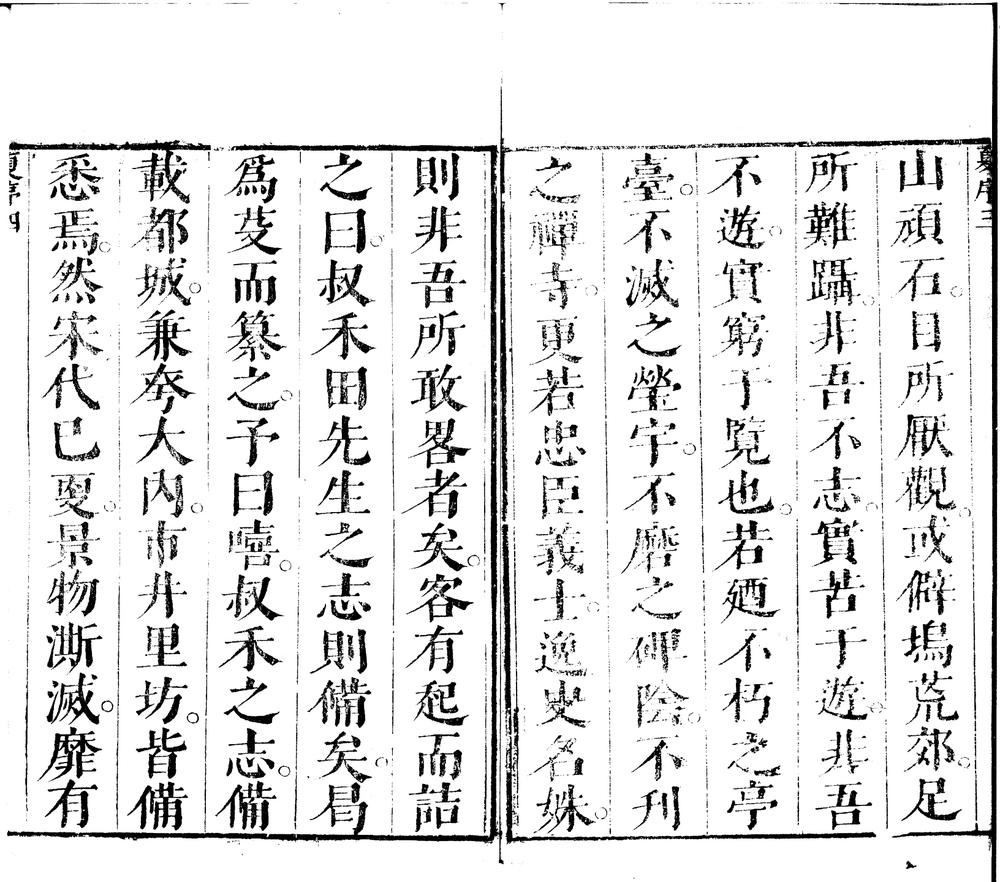 山頑石。目所厭觀。或僻塢荒郊。足
所難躡。非吾不志。實苦于遊。非吾
不遊。實窮于覽也。若廼不朽之亭
臺。不滅之塋宇。不磨之碑陰。不刋
之禪寺。更若忠臣義士。逸史名姝。
則非吾所敢畧者矣。客有起而詰
之曰。叔禾田先生之志則備矣。曷
爲芟而纂之。予曰嘻。叔禾之志。備
載都城。兼夸大內。市井里坊。皆備
悉焉。然宋代已夐。景物澌滅。靡有